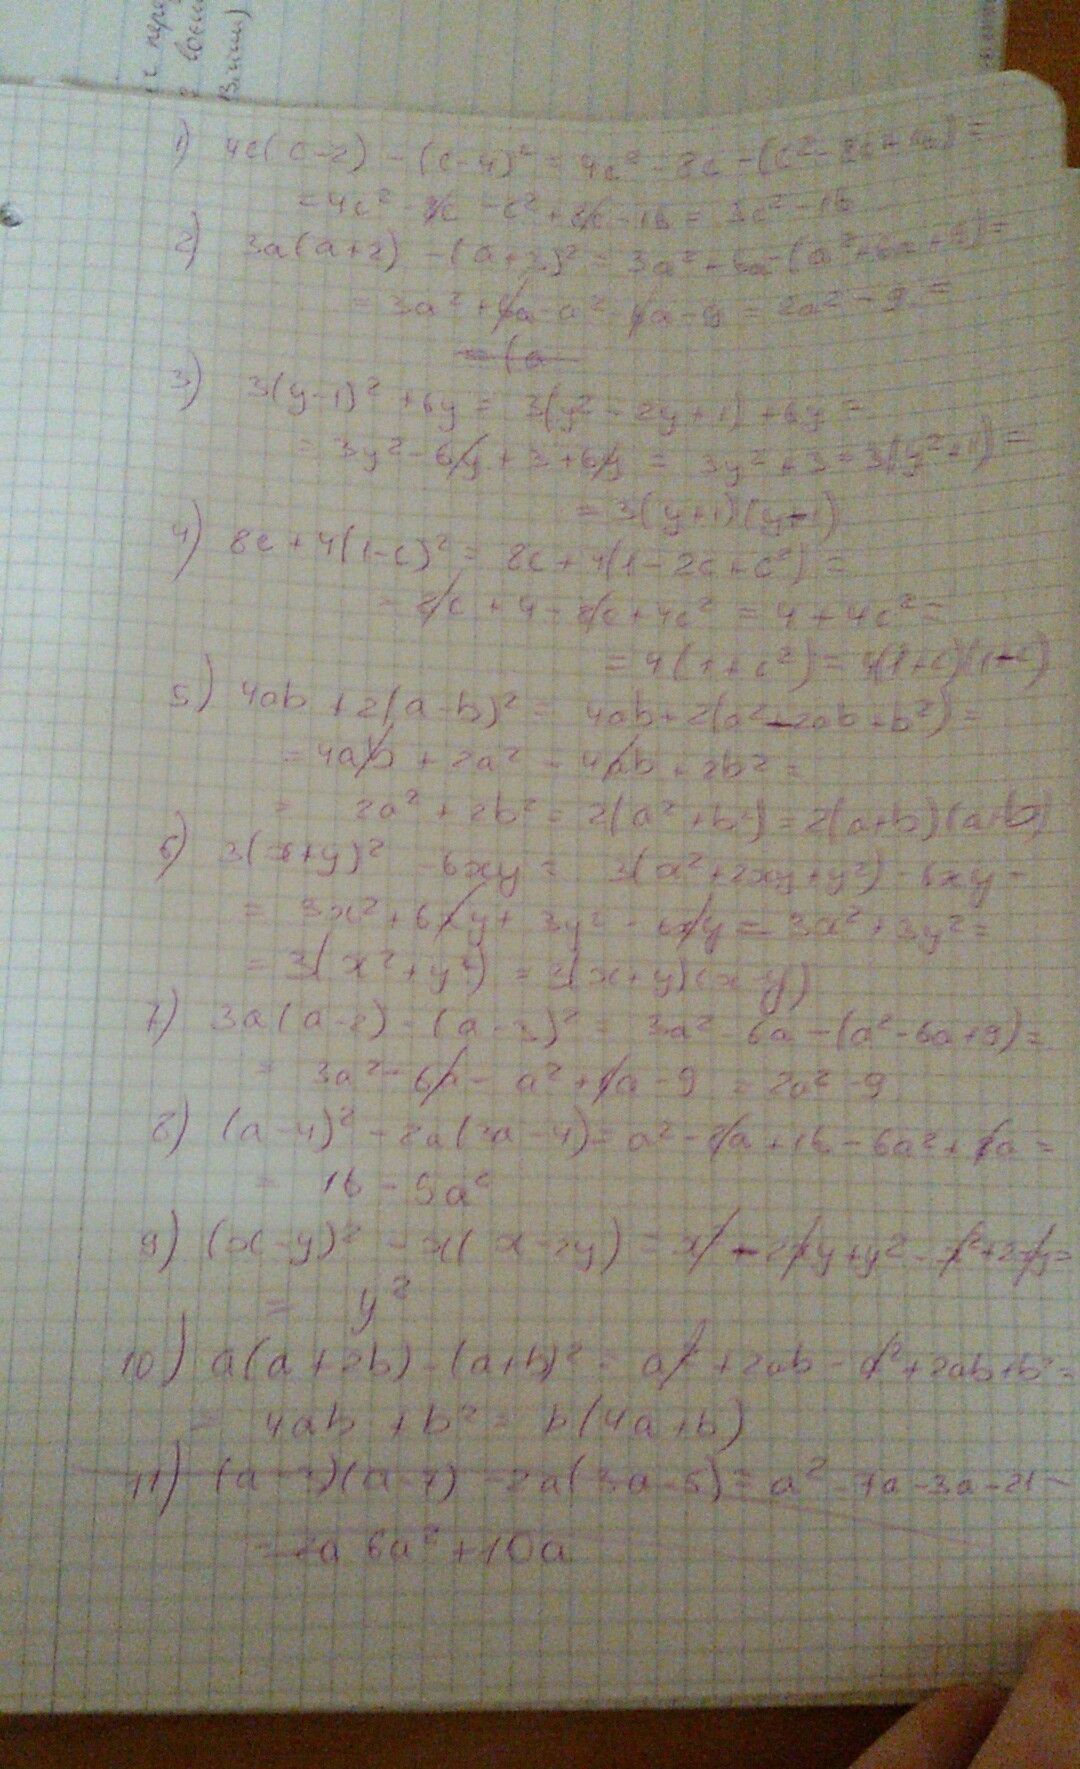 1) 4c(c-2) - (c-4)² = 4c² - 8c - (c² - 8c + 16) =
= 4c² - 8c - c² + 8c - 16 = 3c² - 16
2) 3a(a+2) - (a+3)² = 3a² + 6a - (a² + 6a + 9) =
= 3a² + 6a - a² - 6a - 9 = 2a² - 9 =
= (a
3) 3(y-1)² + 6y = 3(y² - 2y + 1) + 6y =
= 3y² - 6y + 3 + 6y = 3y² + 3 = 3(y² + 1) =
= 3(y+1)(y-1)
4) 8c + 4(1-c)² = 8c + 4(1 - 2c + c²) =
= 8c + 4 - 8c + 4c² = 4 + 4c² =
= 4(1 + c²) = 4(1+c)(1-c)
5) 4ab + 2(a-b)² = 4ab + 2(a² - 2ab + b²) =
= 4ab + 2a² - 4ab + 2b² =
= 2a² + 2b² = 2(a² + b²) = 2(a+b)(a-b)
6) 3(x+y)² - 6xy = 3(x² + 2xy + y²) - 6xy =
= 3x² + 6xy + 3y² - 6xy = 3x² + 3y² =
= 3(x² + y²) = 3(x+y)(x-y)
7) 3a(a-2) - (a-3)² = 3a² - 6a - (a² - 6a + 9) =
= 3a² - 6a - a² + 6a - 9 = 2a² - 9
8) (a-4)² - 2a(3a-4) = a² - 8a + 16 - 6a² + 8a =
= 16 - 5a²
9) (x-y)² - x(x-2y) = x² - 2xy + y² - x² + 2xy =
= y²
10) a(a+2b) - (a+b)² = a² + 2ab - a² + 2ab + b² =
= 4ab + b² = b(4a+b)
11) (a-3)(a-7) - 2a(3a-5) = a² - 7a - 3a - 21 -
6a² + 10a